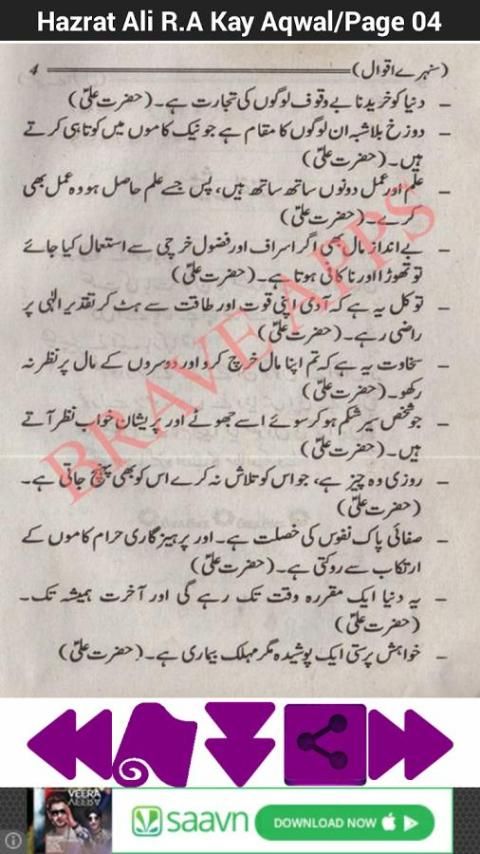 Hazrat Ali R.A Kay Aqwal/Page 04
(سنہرے اقوال) 4
- دنیا کو خریدنا بے وقوف لوگوں کی تجارت ہے۔ (حضرت علیؓ)
- دوزخ بلاشبہ ان لوگوں کا مقام ہے جو نیک کاموں میں کوتاہی کرتے
ہیں۔ (حضرت علیؓ)
- علم اور عمل دونوں ساتھ ساتھ ہیں، پس جسے علم حاصل ہو وہ عمل بھی
کرے۔ (حضرت علیؓ)
- بے انداز مال بھی اگر اسراف اور فضول خرچی سے استعمال کیا جائے
تو تھوڑا اور ناکافی ہوتا ہے۔ (حضرت علیؓ)
- توکل یہ ہے کہ آدمی اپنی قوت اور طاقت سے ہٹ کر تقدیر الٰہی پر
راضی رہے۔ (حضرت علیؓ)
- سخاوت یہ ہے کہ تم اپنا مال خرچ کرو اور دوسروں کے مال پر نظر نہ
رکھو۔ (حضرت علیؓ)
- جو شخص سیر شکم ہو کر سوئے اسے جھوٹے اور پریشان خواب نظر آتے
ہیں۔ (حضرت علیؓ)
- روزی وہ چیز ہے، جو اس کو تلاش نہ کرے اس کو بھی پہنچ جاتی ہے۔
(حضرت علیؓ)
- صفائی پاک نفوس کی خصلت ہے۔ اور پرہیز گاری حرام کاموں کے
ارتکاب سے روکتی ہے۔ (حضرت علیؓ)
- یہ دنیا ایک مقررہ وقت تک رہے گی اور آخرت ہمیشہ تک۔
(حضرت علیؓ)
- خواہش پرستی ایک پوشیدہ مگر مہلک بیماری ہے۔ (حضرت علیؓ)
BRAVE APPS
VEERA
saavn
DOWNLOAD NOW